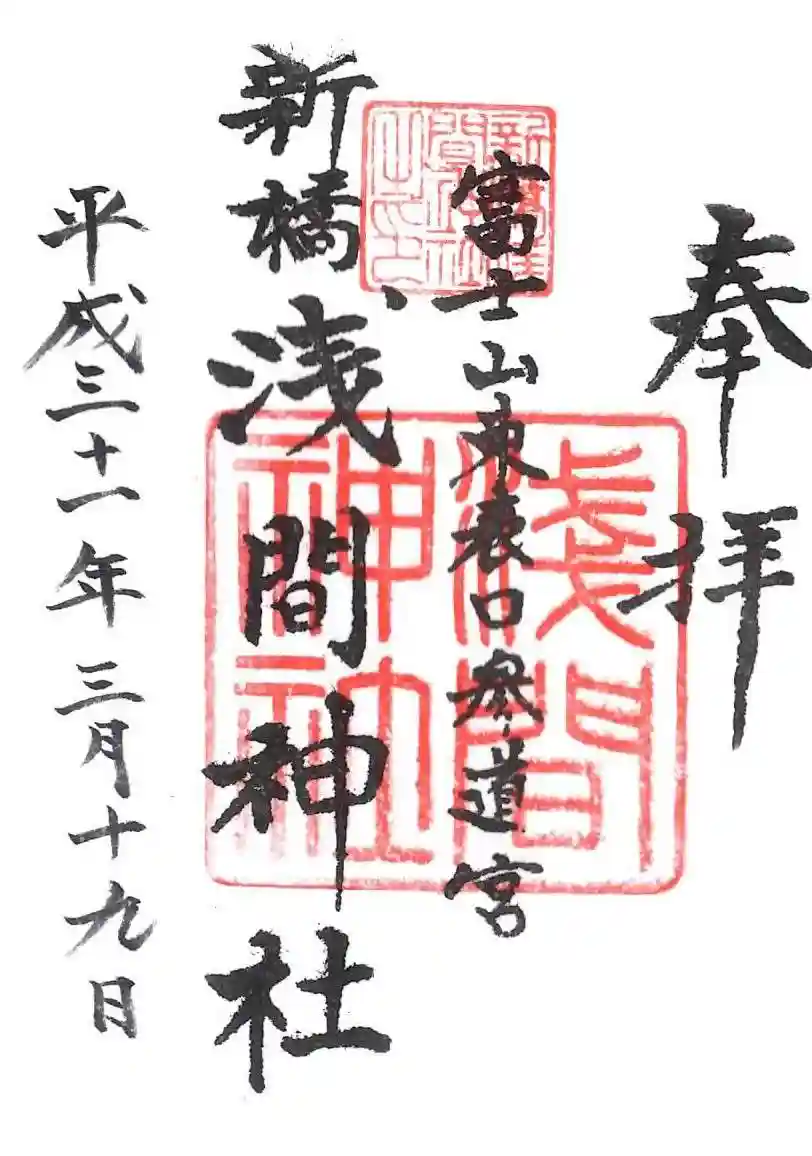 奉拝
富士山東表口参道宮
新橋浅間神社
平成三十一年三月十九日
淺間神社